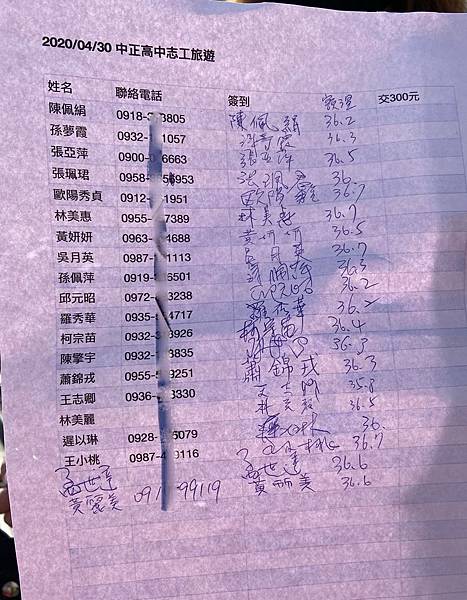 2020/04/30 中正高中志工旅遊
姓名 聯絡電話 簽到 額溫 交300元
陳佩絹 0918- 3805 陳佩絹 36.2
孫夢霞 0932- 1057 孫夢霞 36.3
張亞萍 0900- 6663 張亞萍 36.5
張珮珺 0958- 5953 36.
歐陽秀貞 0912- 1951 歐陽 36.7
林美惠 0955- 7389 林美惠 36.7
黃妍妍 0963- 4688 黃妍妍 36.5
吳月英 0987- 1113 吳月英 36.7
孫佩萍 0919- 6501 孫佩萍 36.3
邱元昭 0972- 3238 36.2
羅秀華 0935- 4717 羅秀華 36.2
柯宗苗 0932- 8926 柯宗苗 36.4
陳擎宇 0932- 8835 36.8
蕭錦戎 0955- 9251 蕭錦戎 36.3
王志卿 0936- 8330 王志卿 35.8
林美麗 林美麗 36.5
遲以琳 0928- 5079 36.
王小桃 0987- 9116 王小桃 36.7
孟世達 孟世達 36.6
黃麗美 091 99119 黃丽美 36.6